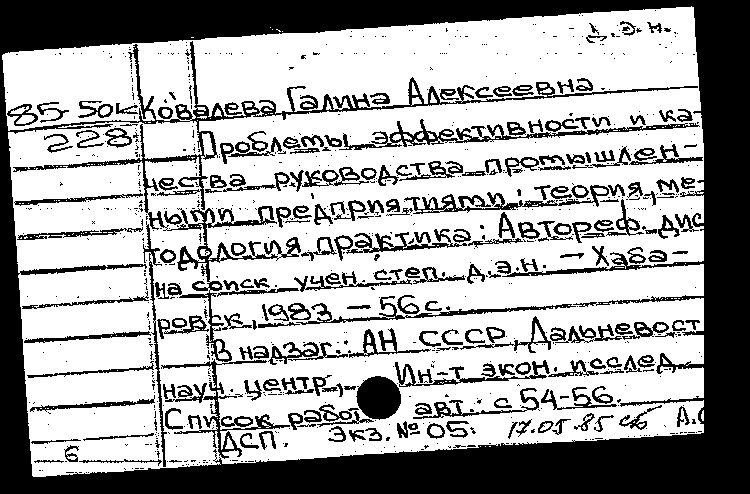 Д.Э.Н.
85-50к Ковалева, Галина Алексеевна.
228 Проблемы эффективности и ка-
чества руководства промышлен-
ными предприятиями: теория, ме-
тодология, практика: Автореф. дис
на соиск. учен. степ. д.э.н. — Хаба-
ровск, 1983. — 56 с.
В надзаг.: АН СССР, Дальневост
науч. центр, Ин-т экон. исслед.
Список работ авт.: с 54-56.
ДСП. Экз. № 05. 17.05.85
6